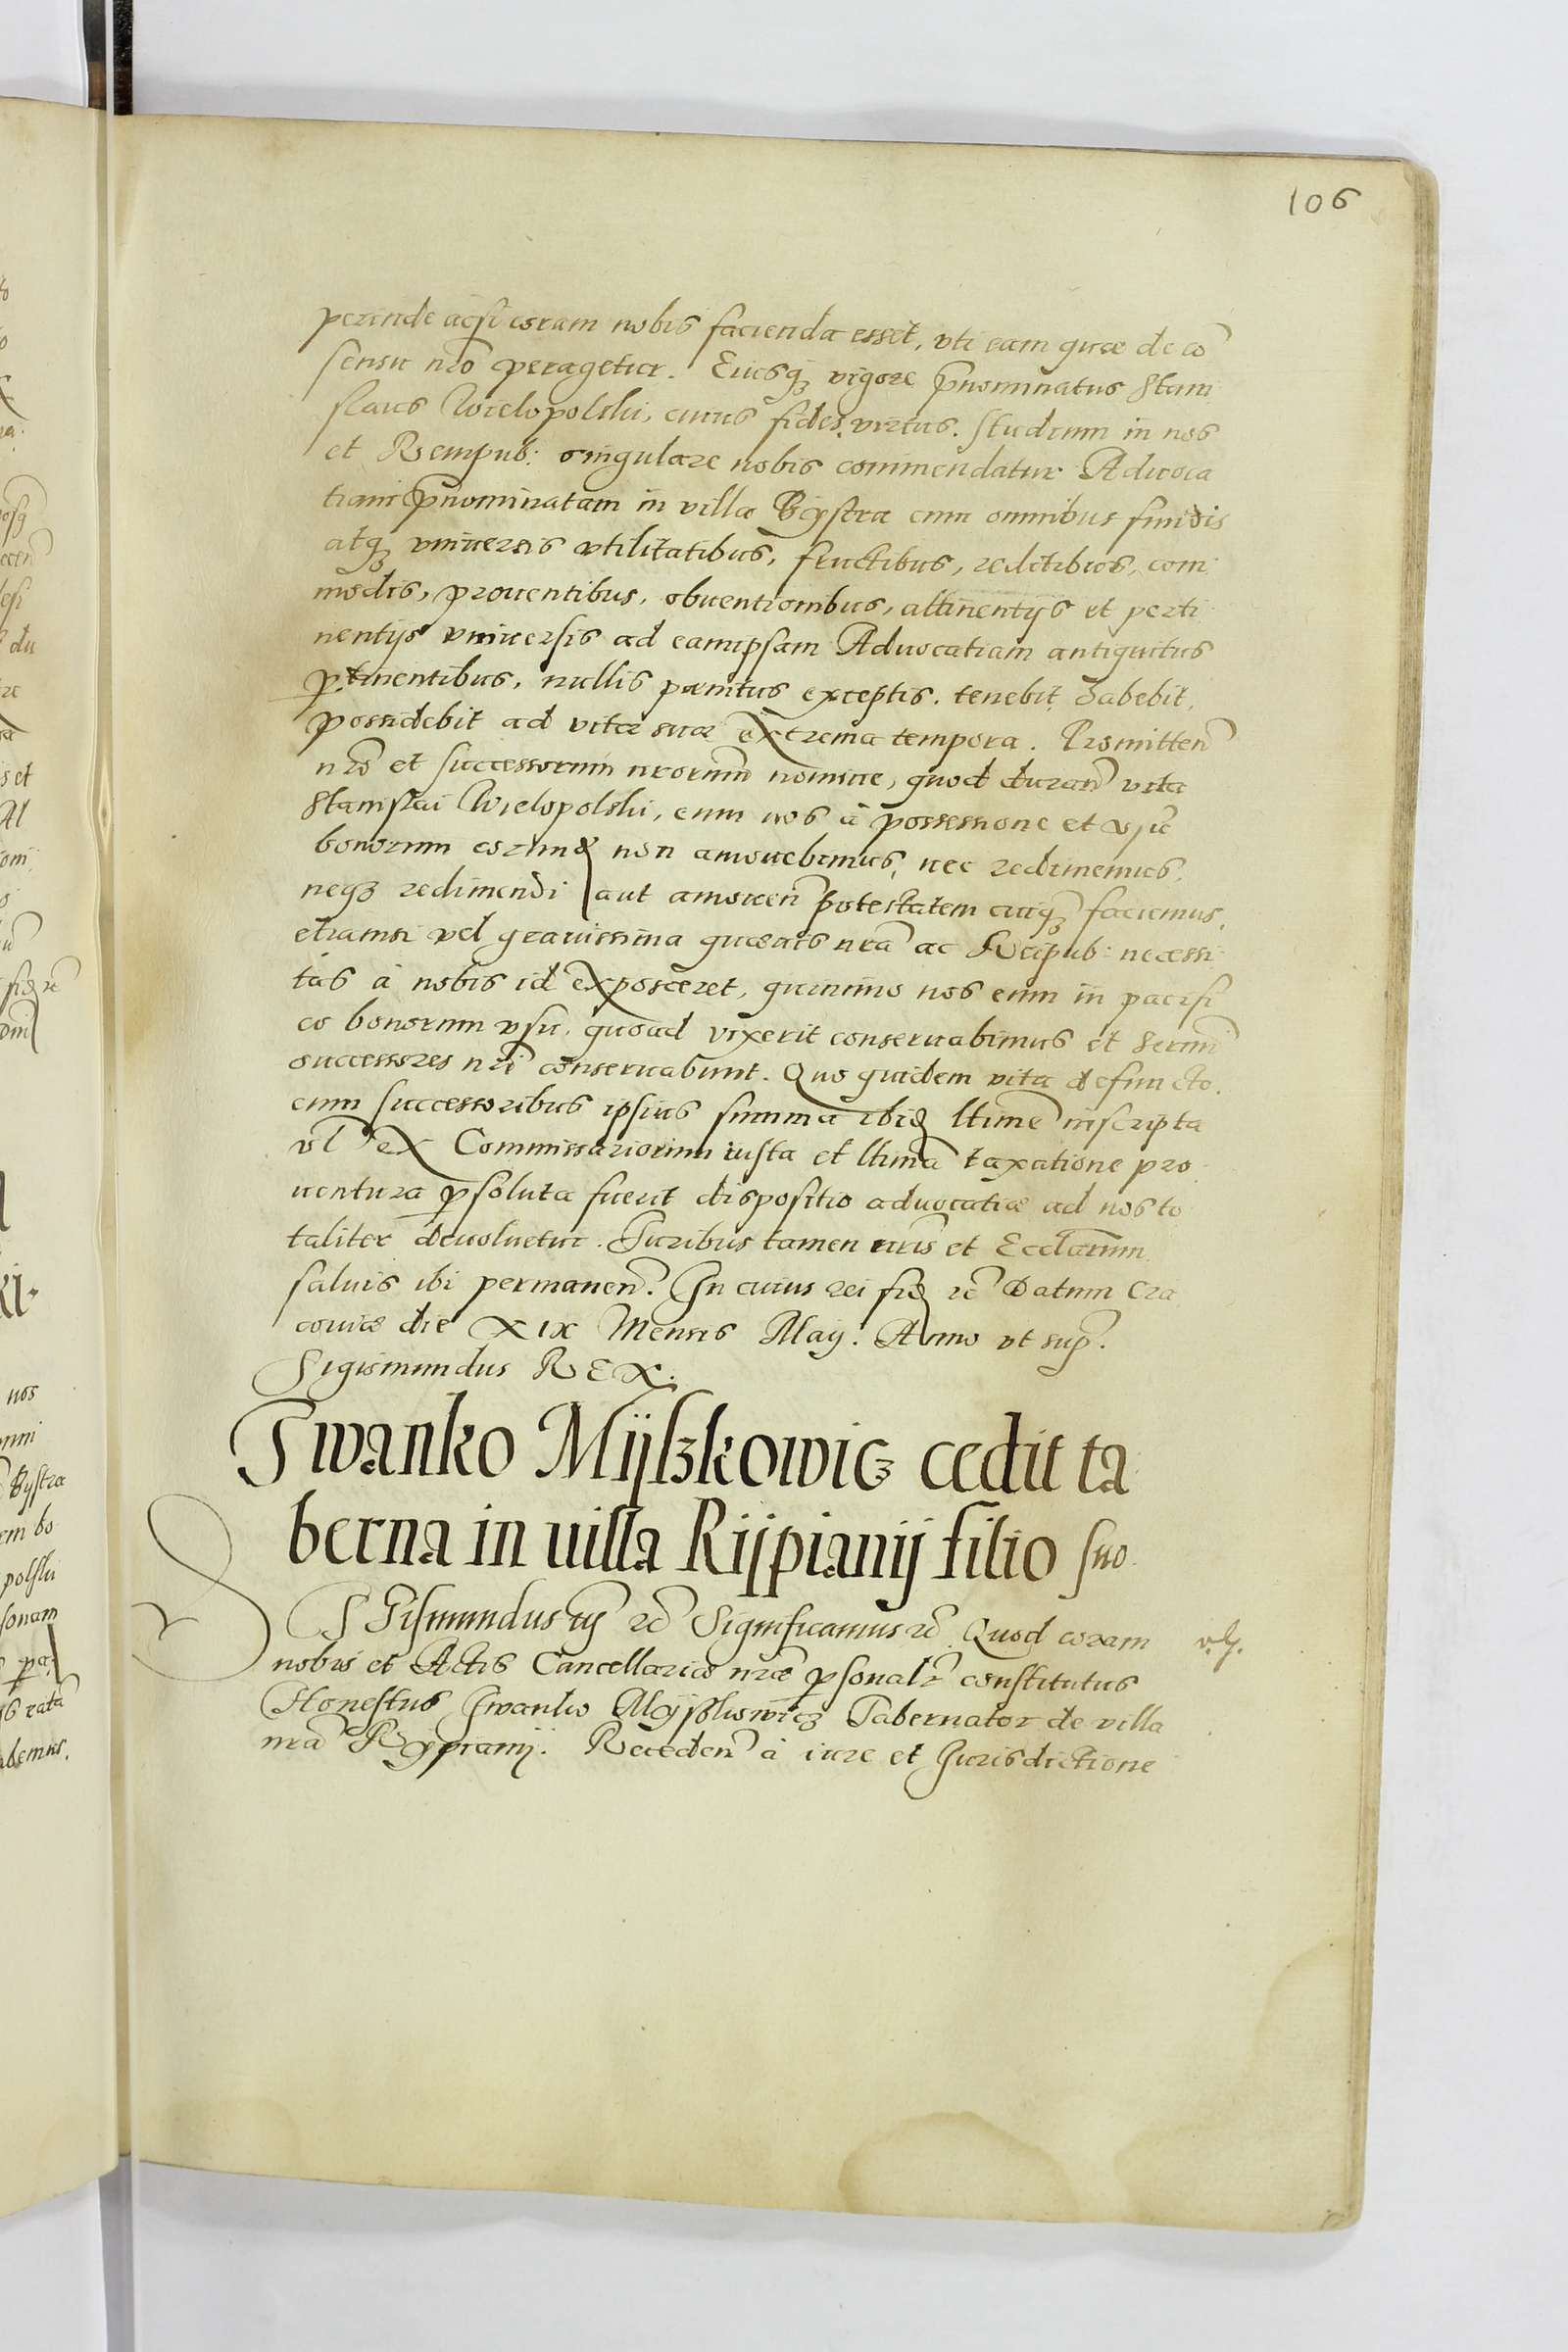 106
perinde acsi coram nobis facienda esset, vti eam quae de cō
sensu nr̄o peragetur. Eiusq₃ vigore p̄nominatus Stani
slaus Wielopolski, cuius fides, virtus. studium in nos
et Rempub: singulare nobis commendatur Aduoca
tiam p̄nominatam in villa Bystra cum omnibus fundis
atq₃ vniuersis vtilitatibus, fructibus, reditibus, com
modis, prouentibus, obuentionibus, attinentijs et perti
nentijs vniuersis ad eamipsam Aduocatiam antiquitus
ꝑtinentibus, nullis paenitus exceptis. tenebit habebit,
possidebit ad vitae suae extrema tempora. Promitten̄
nr̄o et successorum nrorum nomine, quod duran̄ vita
Stanislai Wielopolski, eum nos à possessione et vsu
bonorum eorund non amouebimus, nec redimemus,
neq₃ redimendi aut amouen̄ potestatem cuiq₃ faciemus,
etiamsi vel grauissima quaeuis nr̄a ac Reipub: necessi
tas à nobis id exposceret, quinimo nos eum in pacifi
co bonorum vsu, quoad vixerit conseruabimus et Sermi
successores nr̄i conseruabunt. Quo quidem vita defuncto,
cum successoribus ipsius summa ibid ltime inscripta
vl ex Commissariorum iusta et ltima taxatione pro
uentura ꝑsoluta fuerit dispositio aduocatiae ad nos to
taliter deuoluetur. Iuribus tamen nris et Ecclarum
saluis ibi permanen̄. In cuius rei fid ꝛc̄ Datum Cra
couiae die XIX Mensis Maij. Anno vt sup̄.
Sigismundus REX.
Iwanko Mijszkowicz cedit ta
berna in uilla Rijpianij filio suo
SIGismundus ꝛc̄ Significamus ꝛc̄ Quod coram
nobis et Actis Cancellariae nrae ꝑsonalr̄ constitutus
Honestus Iwanko Myszkowicz Tabernator de villa
nra Rypianij. Receden̄ à iure et Iurisdictione